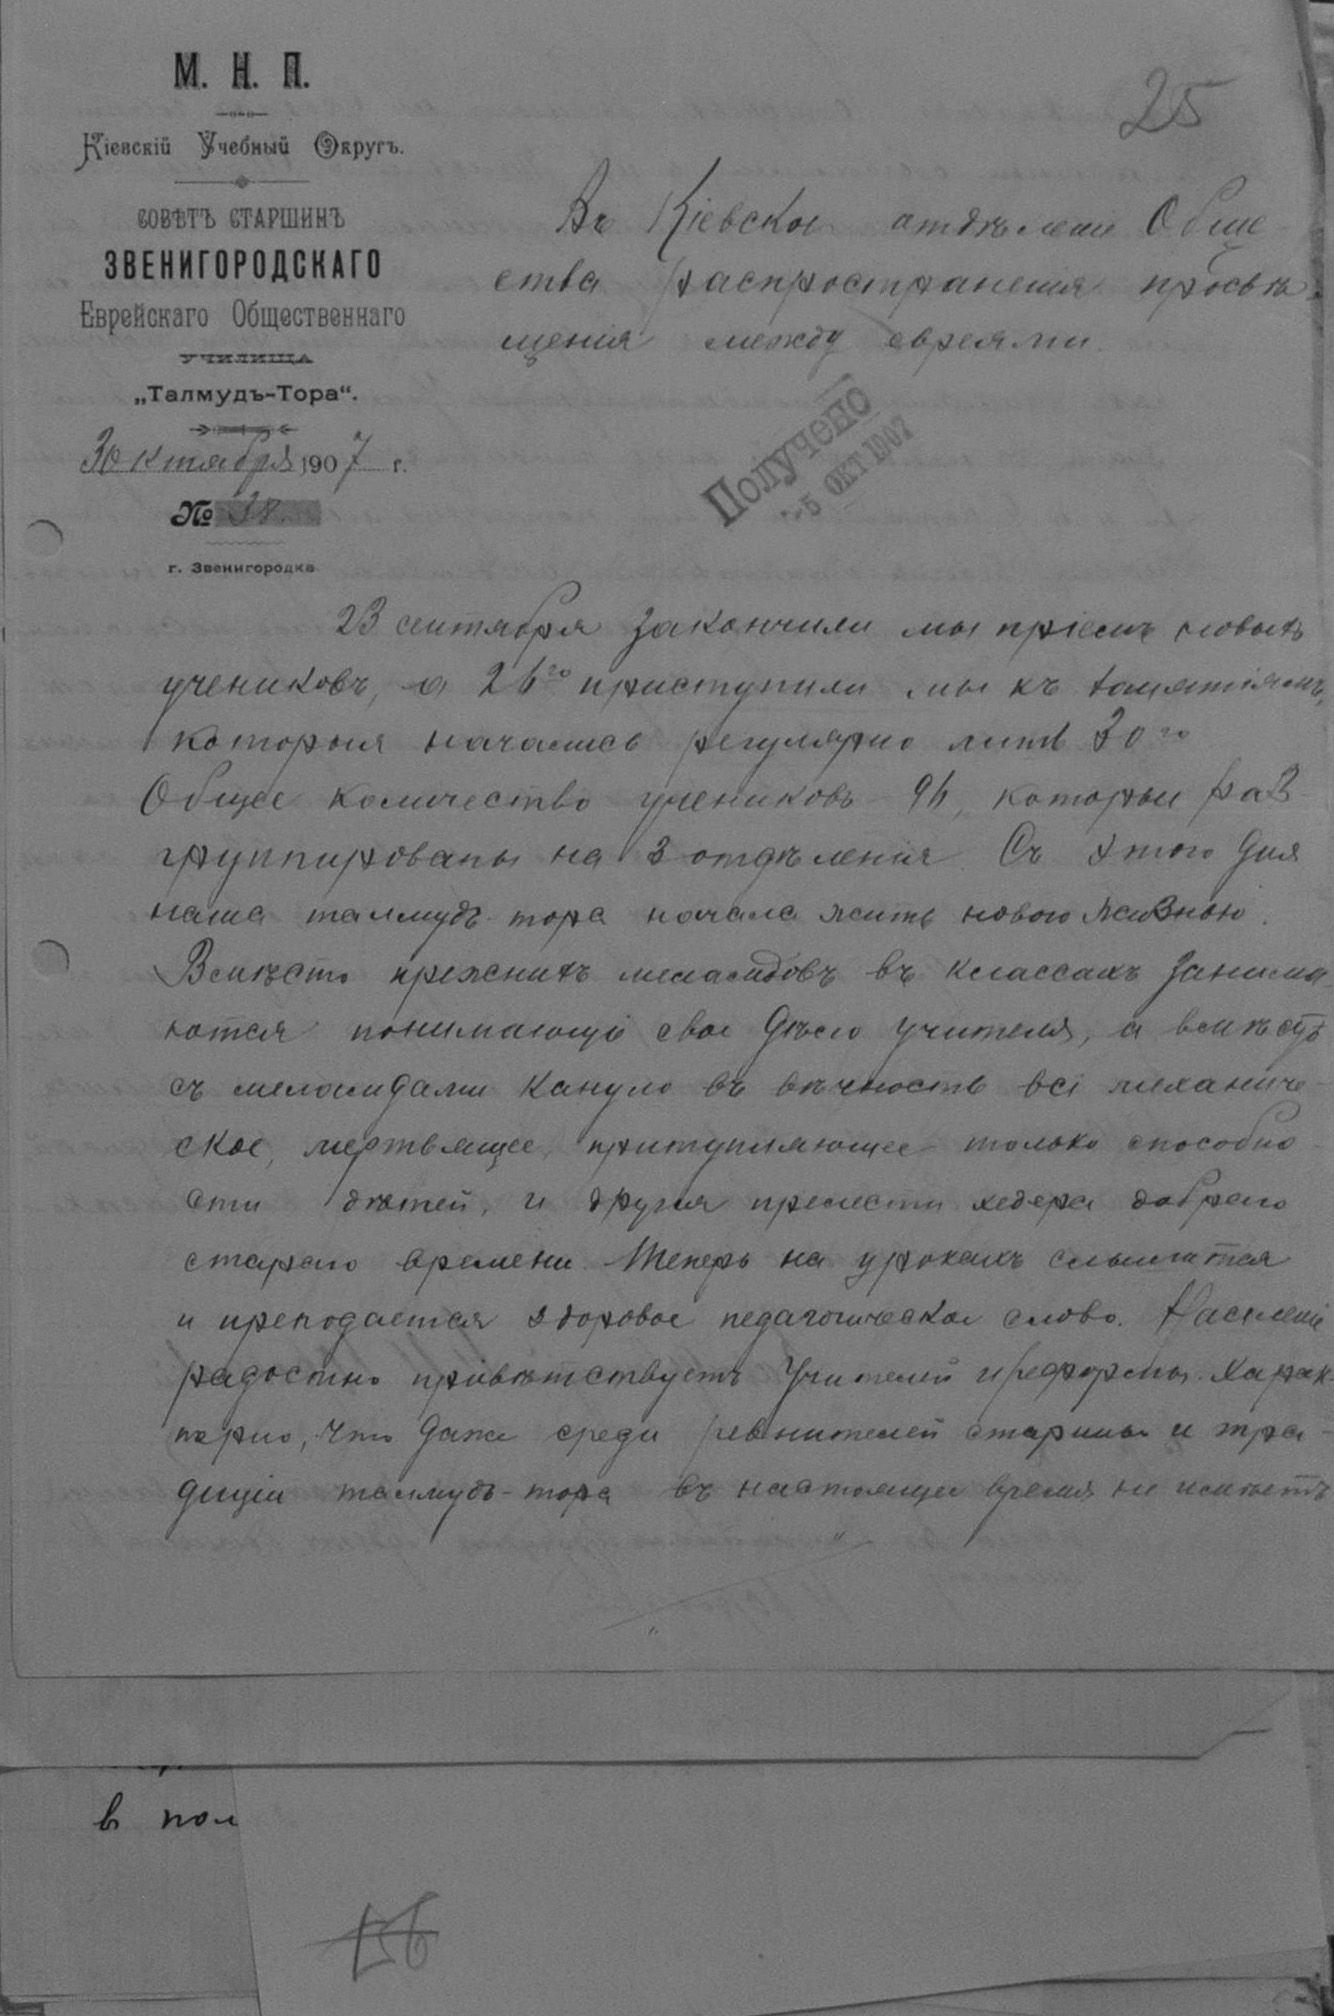 М. Н. П.
Кіевскій Учебный Округъ.
СОВѢТЪ СТАРШИНЪ
ЗВЕНИГОРОДСКАГО
Еврейскаго Общественнаго
УЧИЛИЩА
„Талмудъ-Тора“.
3 Октября 1907 г.
№ 38
г. Звенигородка
25
Въ Кіевское отдѣленіе Обще
ства распространенія просвѣ-
щенія между евреями.
Получено
5 ОКТ 1907
23 сентября закончили мы пріемъ новыхъ
учениковъ, а 26го приступили мы къ занятіямъ,
которыя начались регулярно лишь 30го
Общее количество учениковъ 96, которые раз-
группированы на 3 отдѣленія. Съ этого дня
наша талмудъ-тора начала жить новою жизнью.
Вмѣсто прежнихъ меламдовъ въ классахъ занима-
ются понимающіе свое дѣло учителя, а вмѣстѣ
съ меламдами кануло въ вѣчность все механиче-
ское, мертвящее, притупляющее только способно-
сти дѣтей, и другія прелести хедера добраго
стараго времени. Теперь на урокахъ слышится
и преподается здоровое педагогическое слово. Населеніе
радостно привѣтствуетъ учителей и реформы. Харак-
терно, что даже среди ревнителей старины и тра-
диціи талмудъ-тора въ настоящее время не имѣетъ
в пол
156